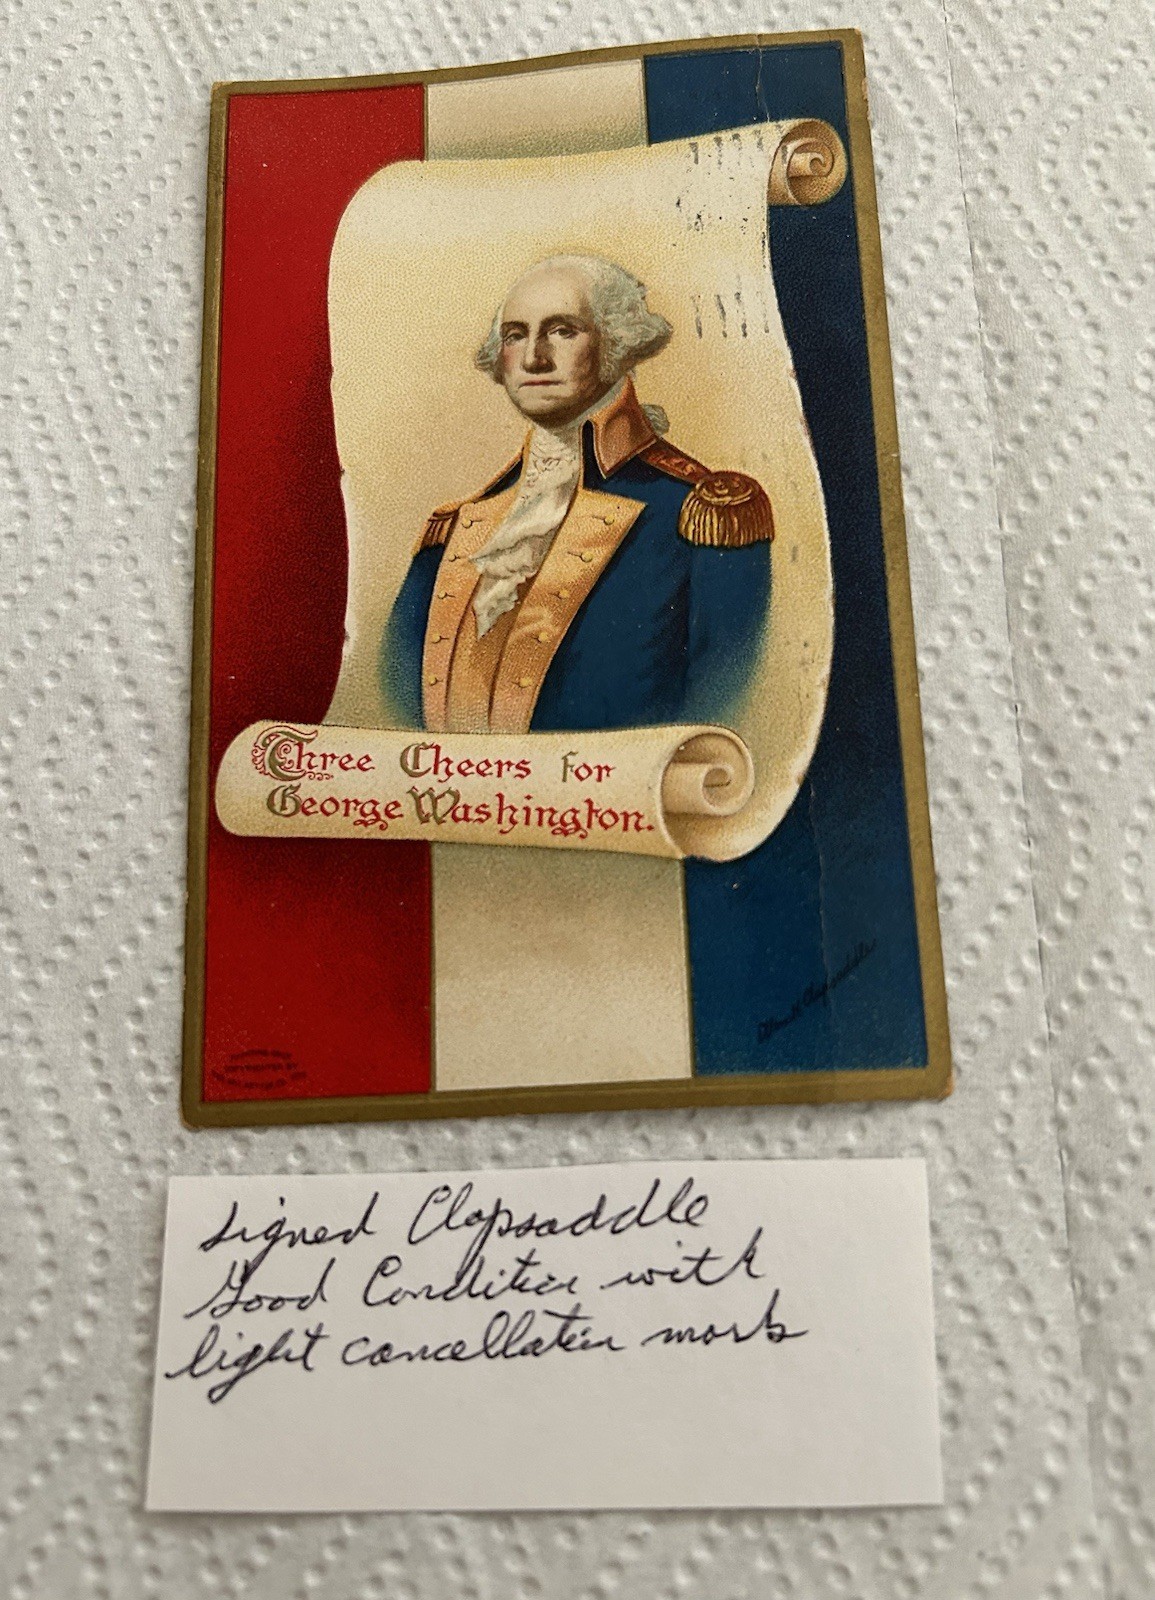 Three Cheers for
George Washington.
Ellen H. Clapsaddle
COPYRIGHTED BY
Signed Clapsaddle
Good Condition with
light cancellation mark